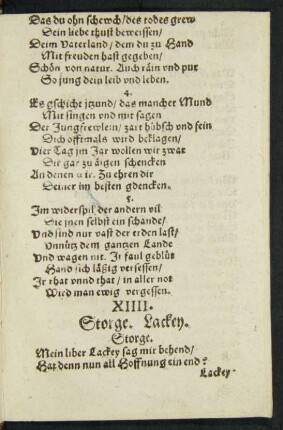 Das du ohn schewch/des todes grew
Dein liebe thust beweissen/
Deim Vaterland/den du zu Hand
Mit freuden hast gegeben/
Schön von natur. Auch räin vnd pur
So jung dein leib vnd leben.
4.
Es gschicht jtzund/das mancher Mund
Mit singen vnd mit sagen
Der Jungfrewlein/zart hübsch vnd fein
Dich offtmals wird beklagen/
Vier Tag im Jar wollen wir zwar
Dir gar zu äigen schencken
An denen wir. Zu ehren dir
Deiner im besten gdencken.
5.
Im widerspil der andern vil
Die jnen selbst ein schande/
Vnd sind nur vast der erden last/
Vnnütz dem gantzen Lande
Vnd wagen nit. Jr faul geblüt
Hand sich läßig versessen/
Jr that vnnd that/in aller not
Wird man ewig vergessen.
XIIII.
Storge. Lackey.
Storge.
Mein liber Lackey sag mir behend/
Hat denn nun all Hoffnung ein end?
Lackey.